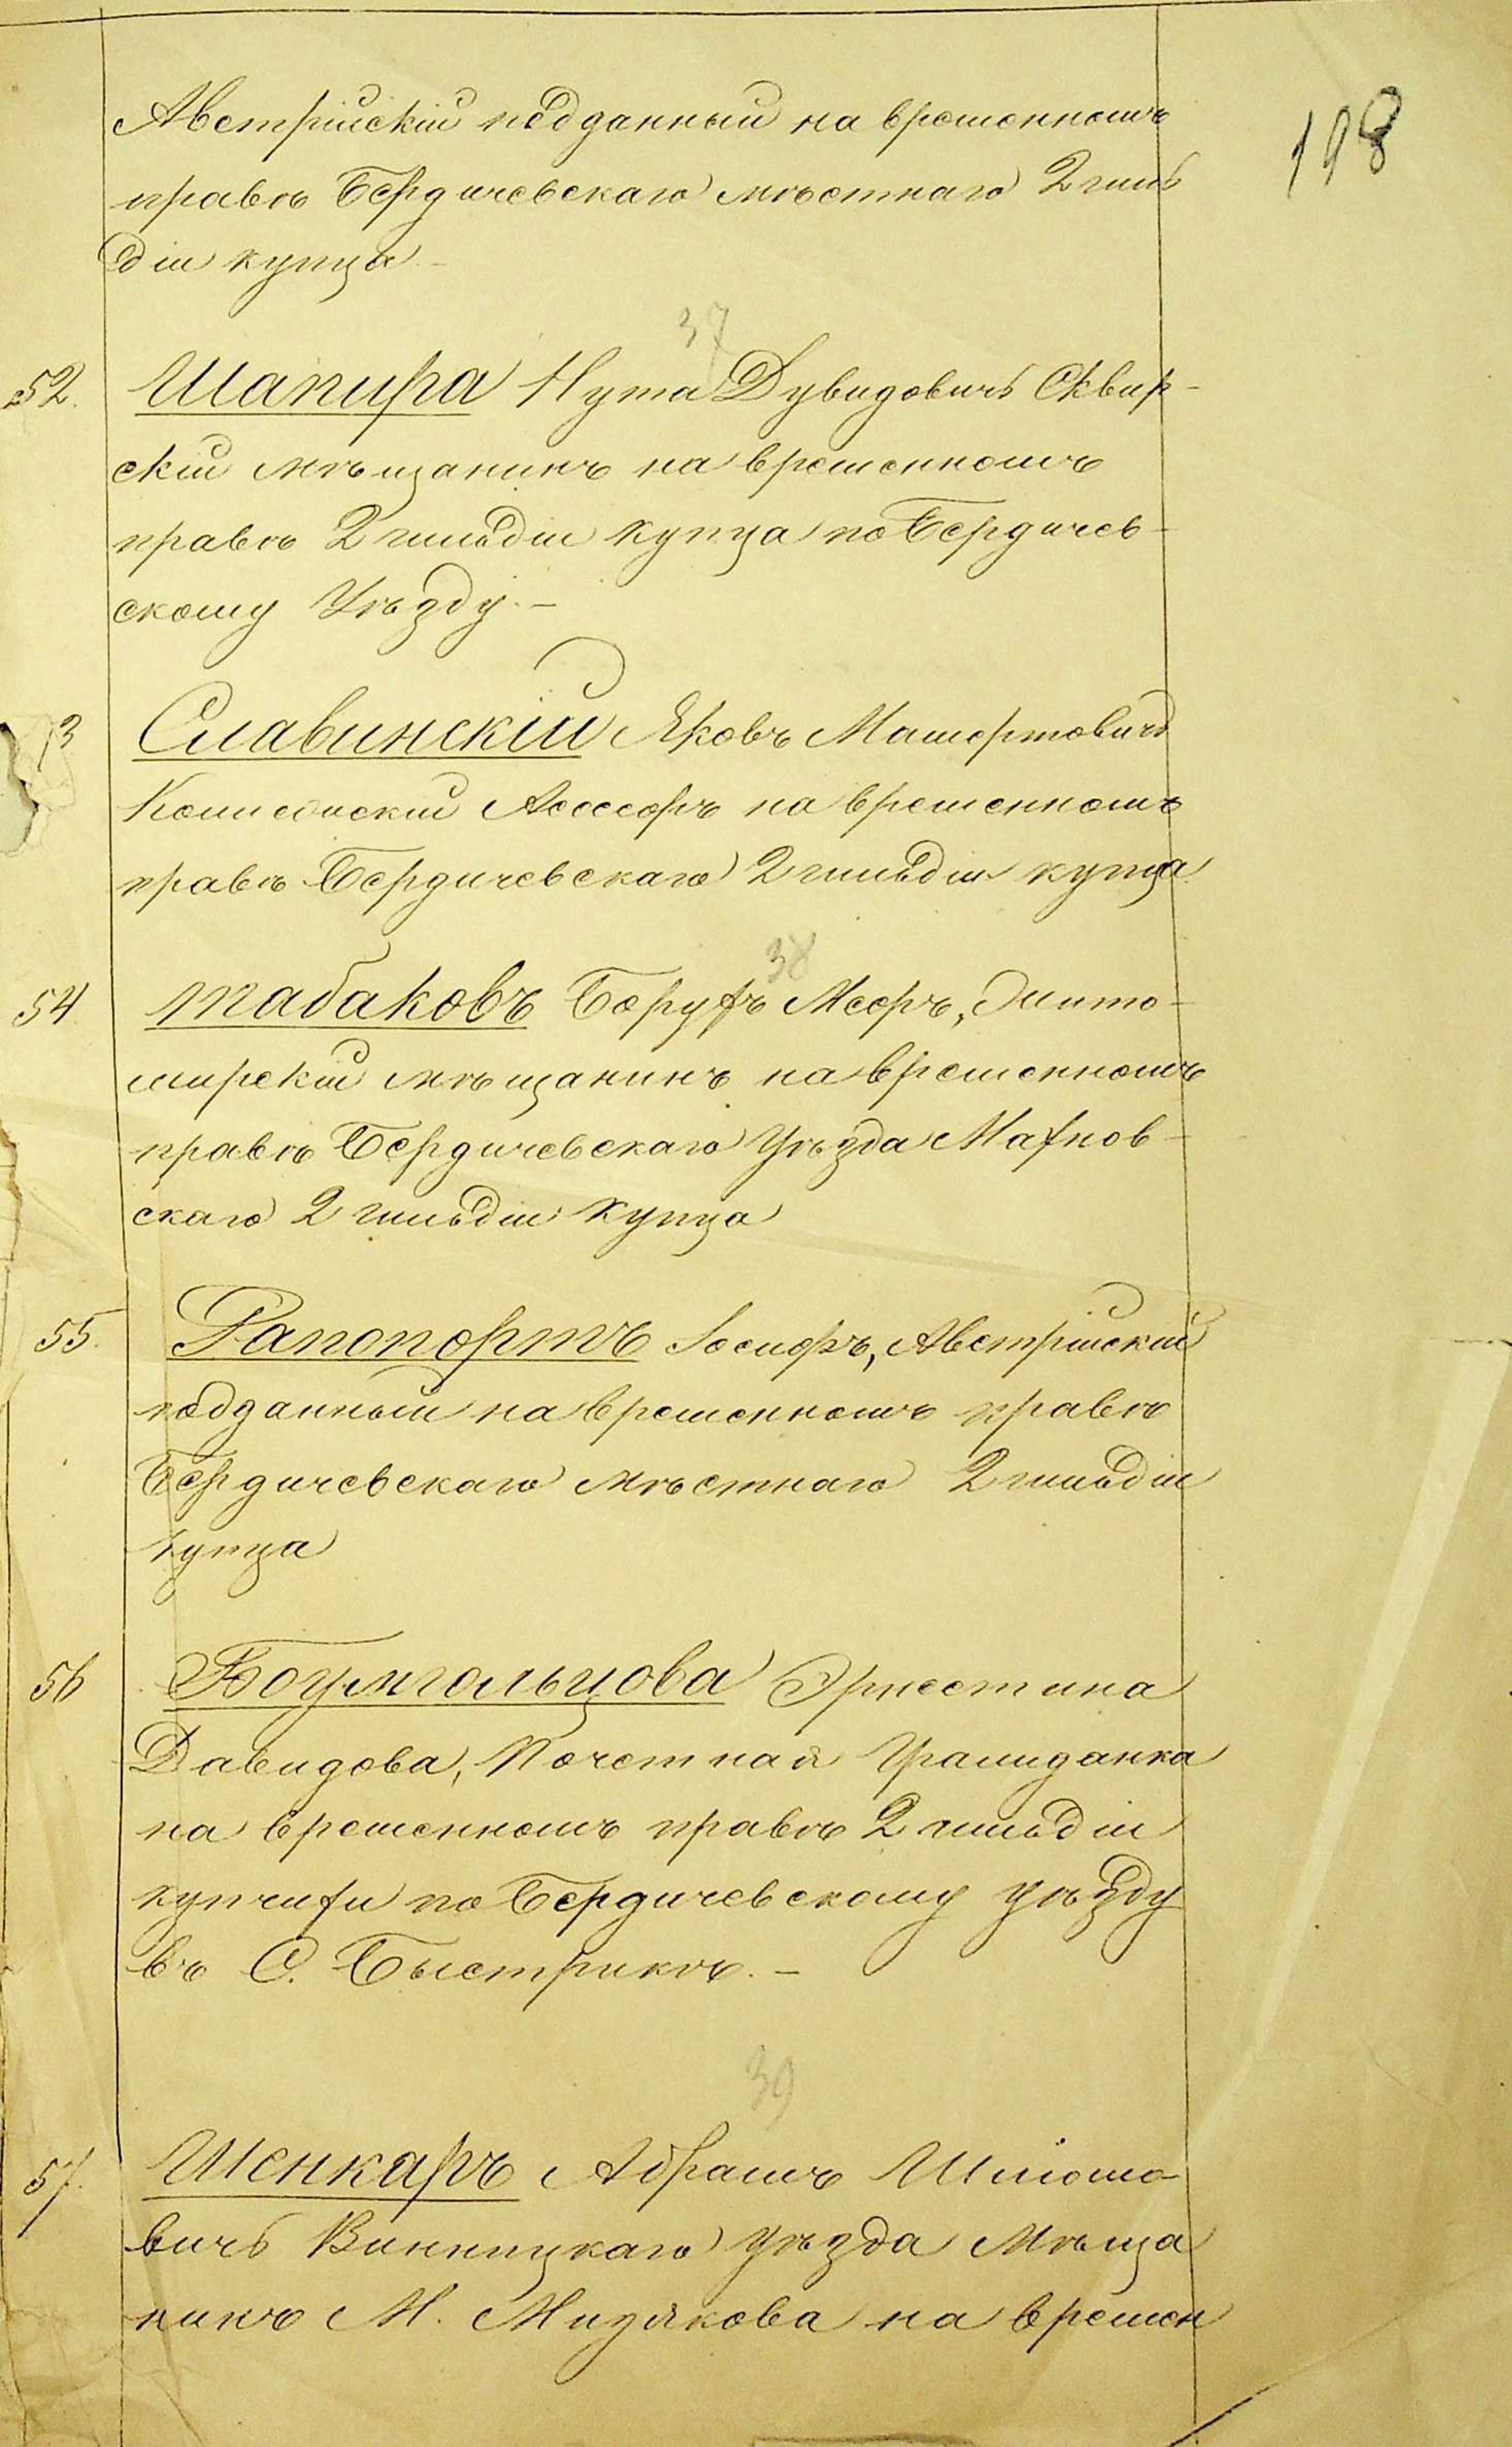 198
Австрійскій подданный на временномъ
правѣ Бердичевскаго мѣстнаго 2 гиль
діи купца
37
52. Шапира Нута Дувидовичъ Сквир-
скій мѣщанинъ на временномъ
правѣ 2 гильдіи купца по Бердичев-
скому Уѣзду. –
3 Славинскій Яковъ
Ассесоръ на временномъ
правѣ Бердичевскаго 2 гильдіи купца
38
54. Табаковъ Борухъ Мееръ, Жито-
мирскій мѣщанинъ на временномъ
правѣ Бердичевскаго Уѣзда Махнов-
скаго 2 гильдіи купца
55. Рапопортъ Іосифъ, Австрійскій
подданный на временномъ правѣ
Бердичевскаго мѣстнаго 2 гильдіи
купца
56 Боумгольцова Эрнестина
Давидова, Почетная Гражданка
на временномъ правѣ 2 гильдіи
купчихи по Бердичевскому уѣзду
въ С. Быстрикѣ. –
39
57. Шенкаръ Абрамъ Шліомо-
вичъ Винницкаго уѣзда Мѣща
нинъ М. Мизякова на времен